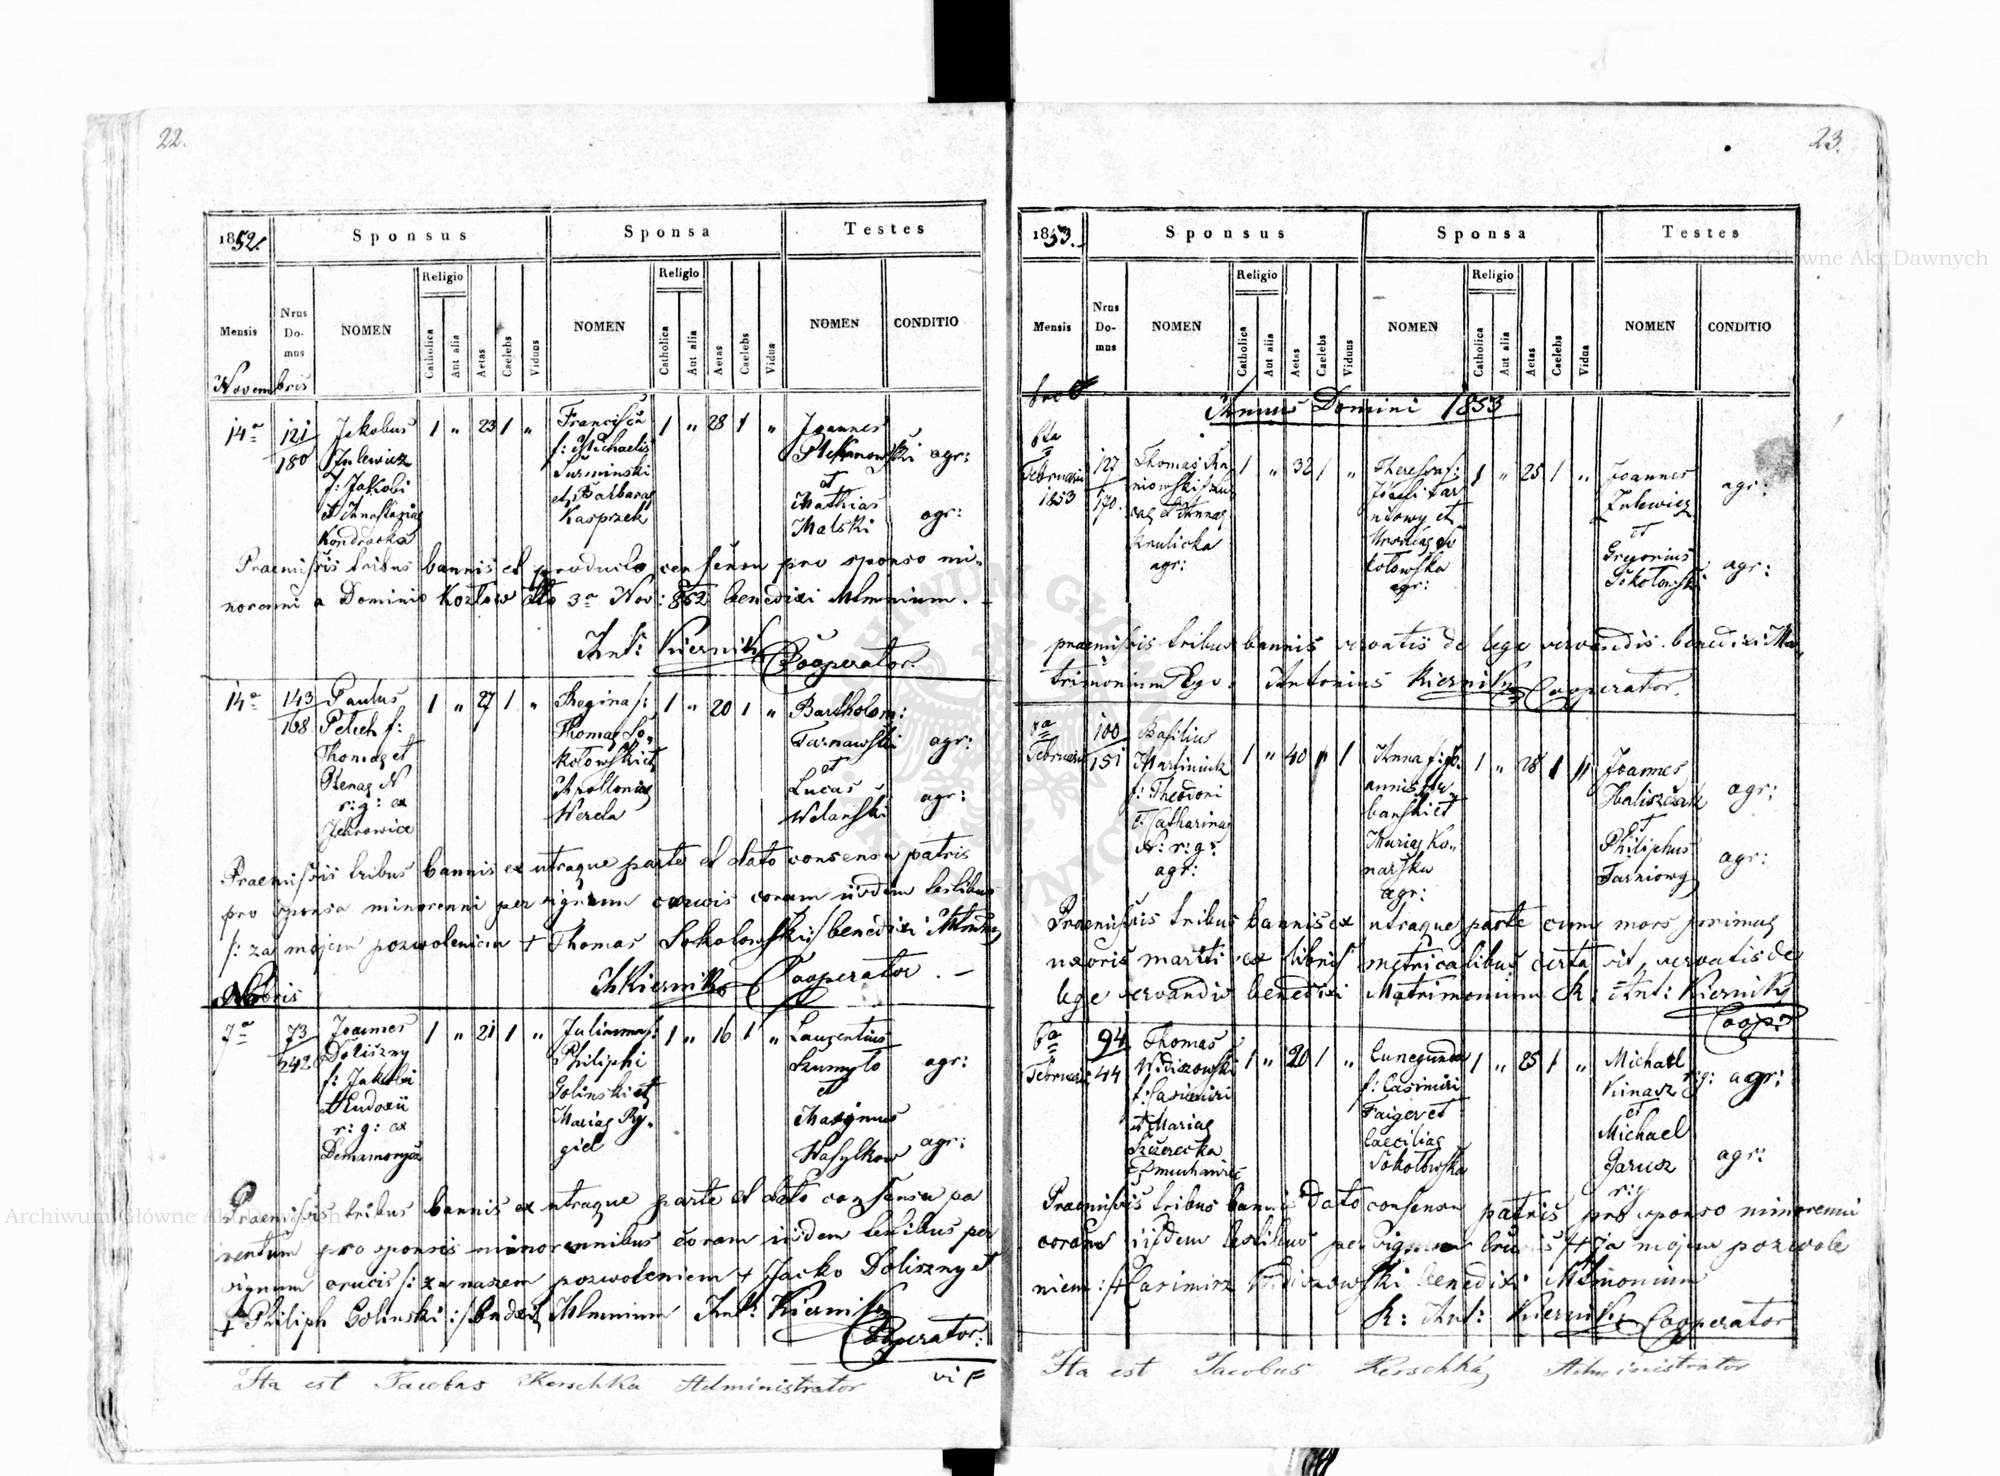 22.
1852.
Sponsus
Sponsa
Testes
Mensis
Nrus Domus
NOMEN
Religio
Catholica
Aut alia
Aetas
Caelebs
Viduus
NOMEN
Religio
Catholica
Aut alia
Aetas
Caelebs
Vidua
NOMEN
CONDITIO
Novembris
14a 121 Jakobus 1 " 23 1 " Francisca 1 " 28 1 " Joannes
180 Zulewicz f: Michaelis Stefanowski agr:
f: Jakobi Surminski et
et Anastasiae et Barbarae Mathias
Kondracka Kasprzek Malski agr:
Praemissis tribus bannis et producto consensu pro sponso mi-
norenni a Dominio Kozłow dto 3a Nov: 852 benedixi Mtmnium.
Ant: Kiernik Cooperator.
14a 143 Paulus 1 " 27 1 " Regina f: 1 " 20 1 " Bartholom:
168 Petech f: Thomae So- Tarnawski agr:
Thomae et kołowski et et
N Apolloniae Lucas agr:
r: g: ex Werela Wolanski
Jezrowice
Praemissis tribus bannis ex utraque parte et dato consensu patris
pro sponsa minorenni per signum crucis coram iisdem testibus
/: za mojem pozwoleniem + Thomas Sokolowski :/ benedixi
A Kiernik Cooperator. -
Xbris
7a 73 Joannes 1 " 21 1 " Julianna f: 1 " 16 1 " Laurentius
242 Doliszny Philippi Szumyło agr:
f: Jakobi Golinski et et
et Eudoxii Mariae Ry- Maximus
r: g: ex giel Wasylkow agr:
Praemissis tribus bannis ex utraque parte et dato consensu pa
rentum pro sponsis minorennibus coram iisdem testibus per
signum crucis /: za naszem pozwoleniem + Jacko Doliszny et
+ Philiph Golinski :/ Ant: Kiernik
Cooperator:
Ita est Jacobus Kerschka Administrator
23.
1853.
Sponsus
Sponsa
Testes
Mensis
Nrus Domus
NOMEN
Religio
Catholica
Aut alia
Aetas
Caelebs
Viduus
NOMEN
Religio
Catholica
Aut alia
Aetas
Caelebs
Vidua
NOMEN
CONDITIO
Annus Domini 1853
6ta 127 Thomas Ra 1 " 32 1 " Theressa f: 1 " 25 1 " Joannes
Februarii 170 niowski f: Josefi Tar Zulewicz agr:
1853 et Annae nowy et et
Krulicka Gregorius
agr: kołowska Sokołowski agr:
agr:
praemissis tribus bannis servatis de lege servandis benedixi Ma-
trimonium Ego: Antonius Kiernik Cooperator.
100 Basilius
Februarii 151 Martiniuk 1 " 40 " 1 Anna f: Jo- 1 " 28 1 " Joannes
f: Theodori annis agr:
et Catharinae et et
N: r: g: Mariae Ko- Philiphus
agr: narska Tarniowy agr:
agr:
Praemissis tribus bannis ex utraque parte cum mors primae
uxoris mariti ex libris metricalibus certa sit, servatis de
lege servandis benedixi Matrimonium R: Ant: Kiernik
Coop:
6a 94 Thomas 1 " 20 1 " Cunegunda 1 " 25 1 " Michael
Februarii 44 Widiszowski f: Casimiri Kinasz r:g: agr:
f: Casimiri Faiger et et
et Mariae Caeciliae Michael
Szczerecka Sokołowska Jarusz agr:
r:g:
Praemissis tribus bannis dato consensu patris pro sponso minorenni
coram iisdem testibus per signum crucis /: za mojem pozwole
niem :/ + Casimirz Widiszowski benedixi Mtmonium
R: Ant: Kiernik Cooperator
Ita est Jacobus Kerschka Administrator
Archiwum Główne Akt Dawnych
Archiwum Główne Akt Dawnych